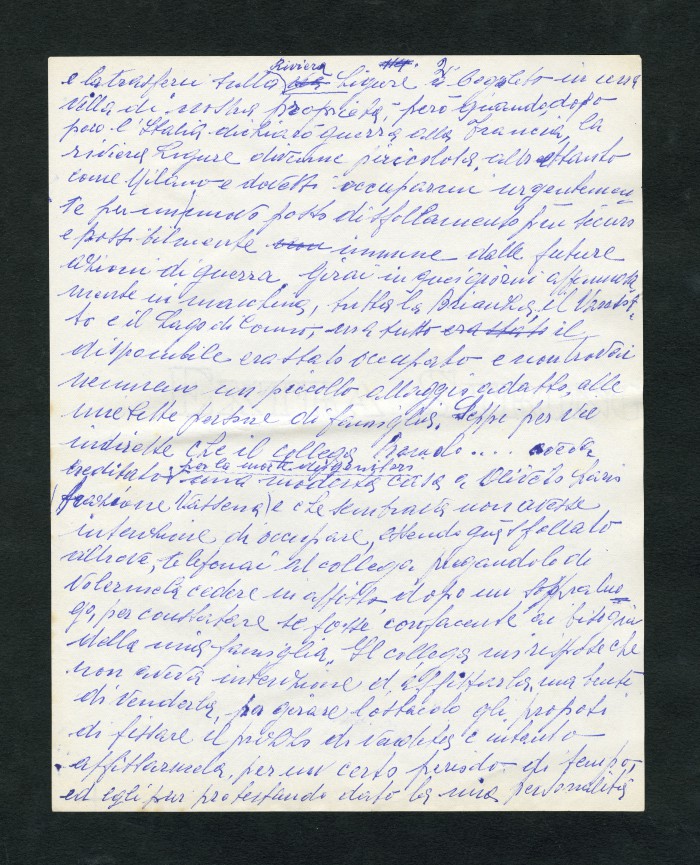 2
Riviera
e la trasferii sulla Ligure a Cogoleto in una
villa di nostra proprietà, però quando, dopo
però l'Italia dichiarò guerra alla Francia, la
riviera Ligure divenne pericolosa, altrettanto
come Milano e dovetti occuparmi urgentemen
te per un posto di sfollamento più sicuro
e possibilmente immune dalle future
azioni di guerra. Girai in quei giorni affannosa
mente in macchina, tutta la Brianza, il
to e il Lago di Como, ma tutto il
disponibile era stato occupato e non trovai
nemmeno un piccolo alloggio adatto, alle
mie sette persone di famiglia. Seppi per vie
indirette che il collega .... aveva
per la morte dei genitori
ereditato una modesta casa a Oliveto Lario
(frazione Vassena) e che sembrava non avesse
intenzione di occupare, essendo già sfollato
altrove, telefonai al collega pregandolo di
volermela cedere in affitto dopo un sopraluo
go, per constatare se fosse confacente ai bisogni
della mia famiglia. Il collega mi rispose che
non aveva intenzione d'affittarla, ma
di venderla, per girare l'ostacolo gli proposi
di fissare il prezzo di vendita e intanto
affittarmela, per un certo periodo di tempo,
ed egli pur protestando dato la mia personalità